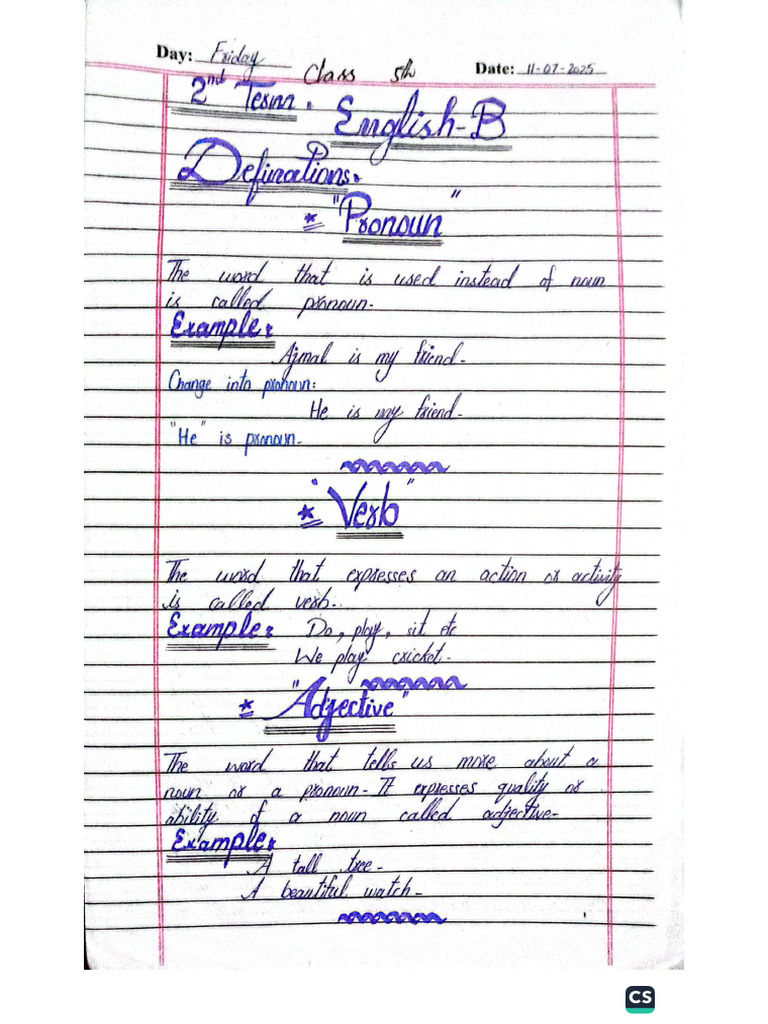 Day: Friday Class 5th Date: 11-07-2025
2nd Term: English-B
Definations:
* "Pronoun"
The word that is used instead of noun
is called pronoun.
Example:
Ajmal is my friend.
Change into pronoun:
He is my friend.
"He" is pronoun.
* "Verb"
The word that expresses an action or activity
is called verb.
Example: Do, play, sit etc
We play cricket.
* "Adjective"
The word that tells us more about a
noun or a pronoun. It expresses quality or
ability of a noun called adjective.
Example:
A tall tree.
A beautiful watch.
CS